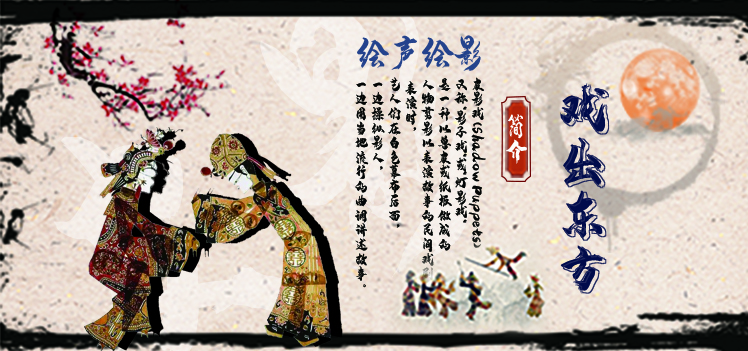 戏出东方
简介
绘声绘影
皮影戏(Shadow Puppets),
又称"影子戏"或"灯影戏",
是一种以兽皮或纸板做成的
人物剪影以表演故事的民间戏
表演时,
艺人们在白色幕布后面,
一边操纵影人,
一边用当地流行的曲调讲述故事。